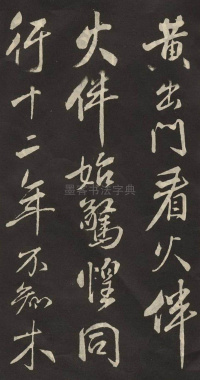 黄出門看火伴
火伴始驚惶同
行十二年不知木
墨客书法字典